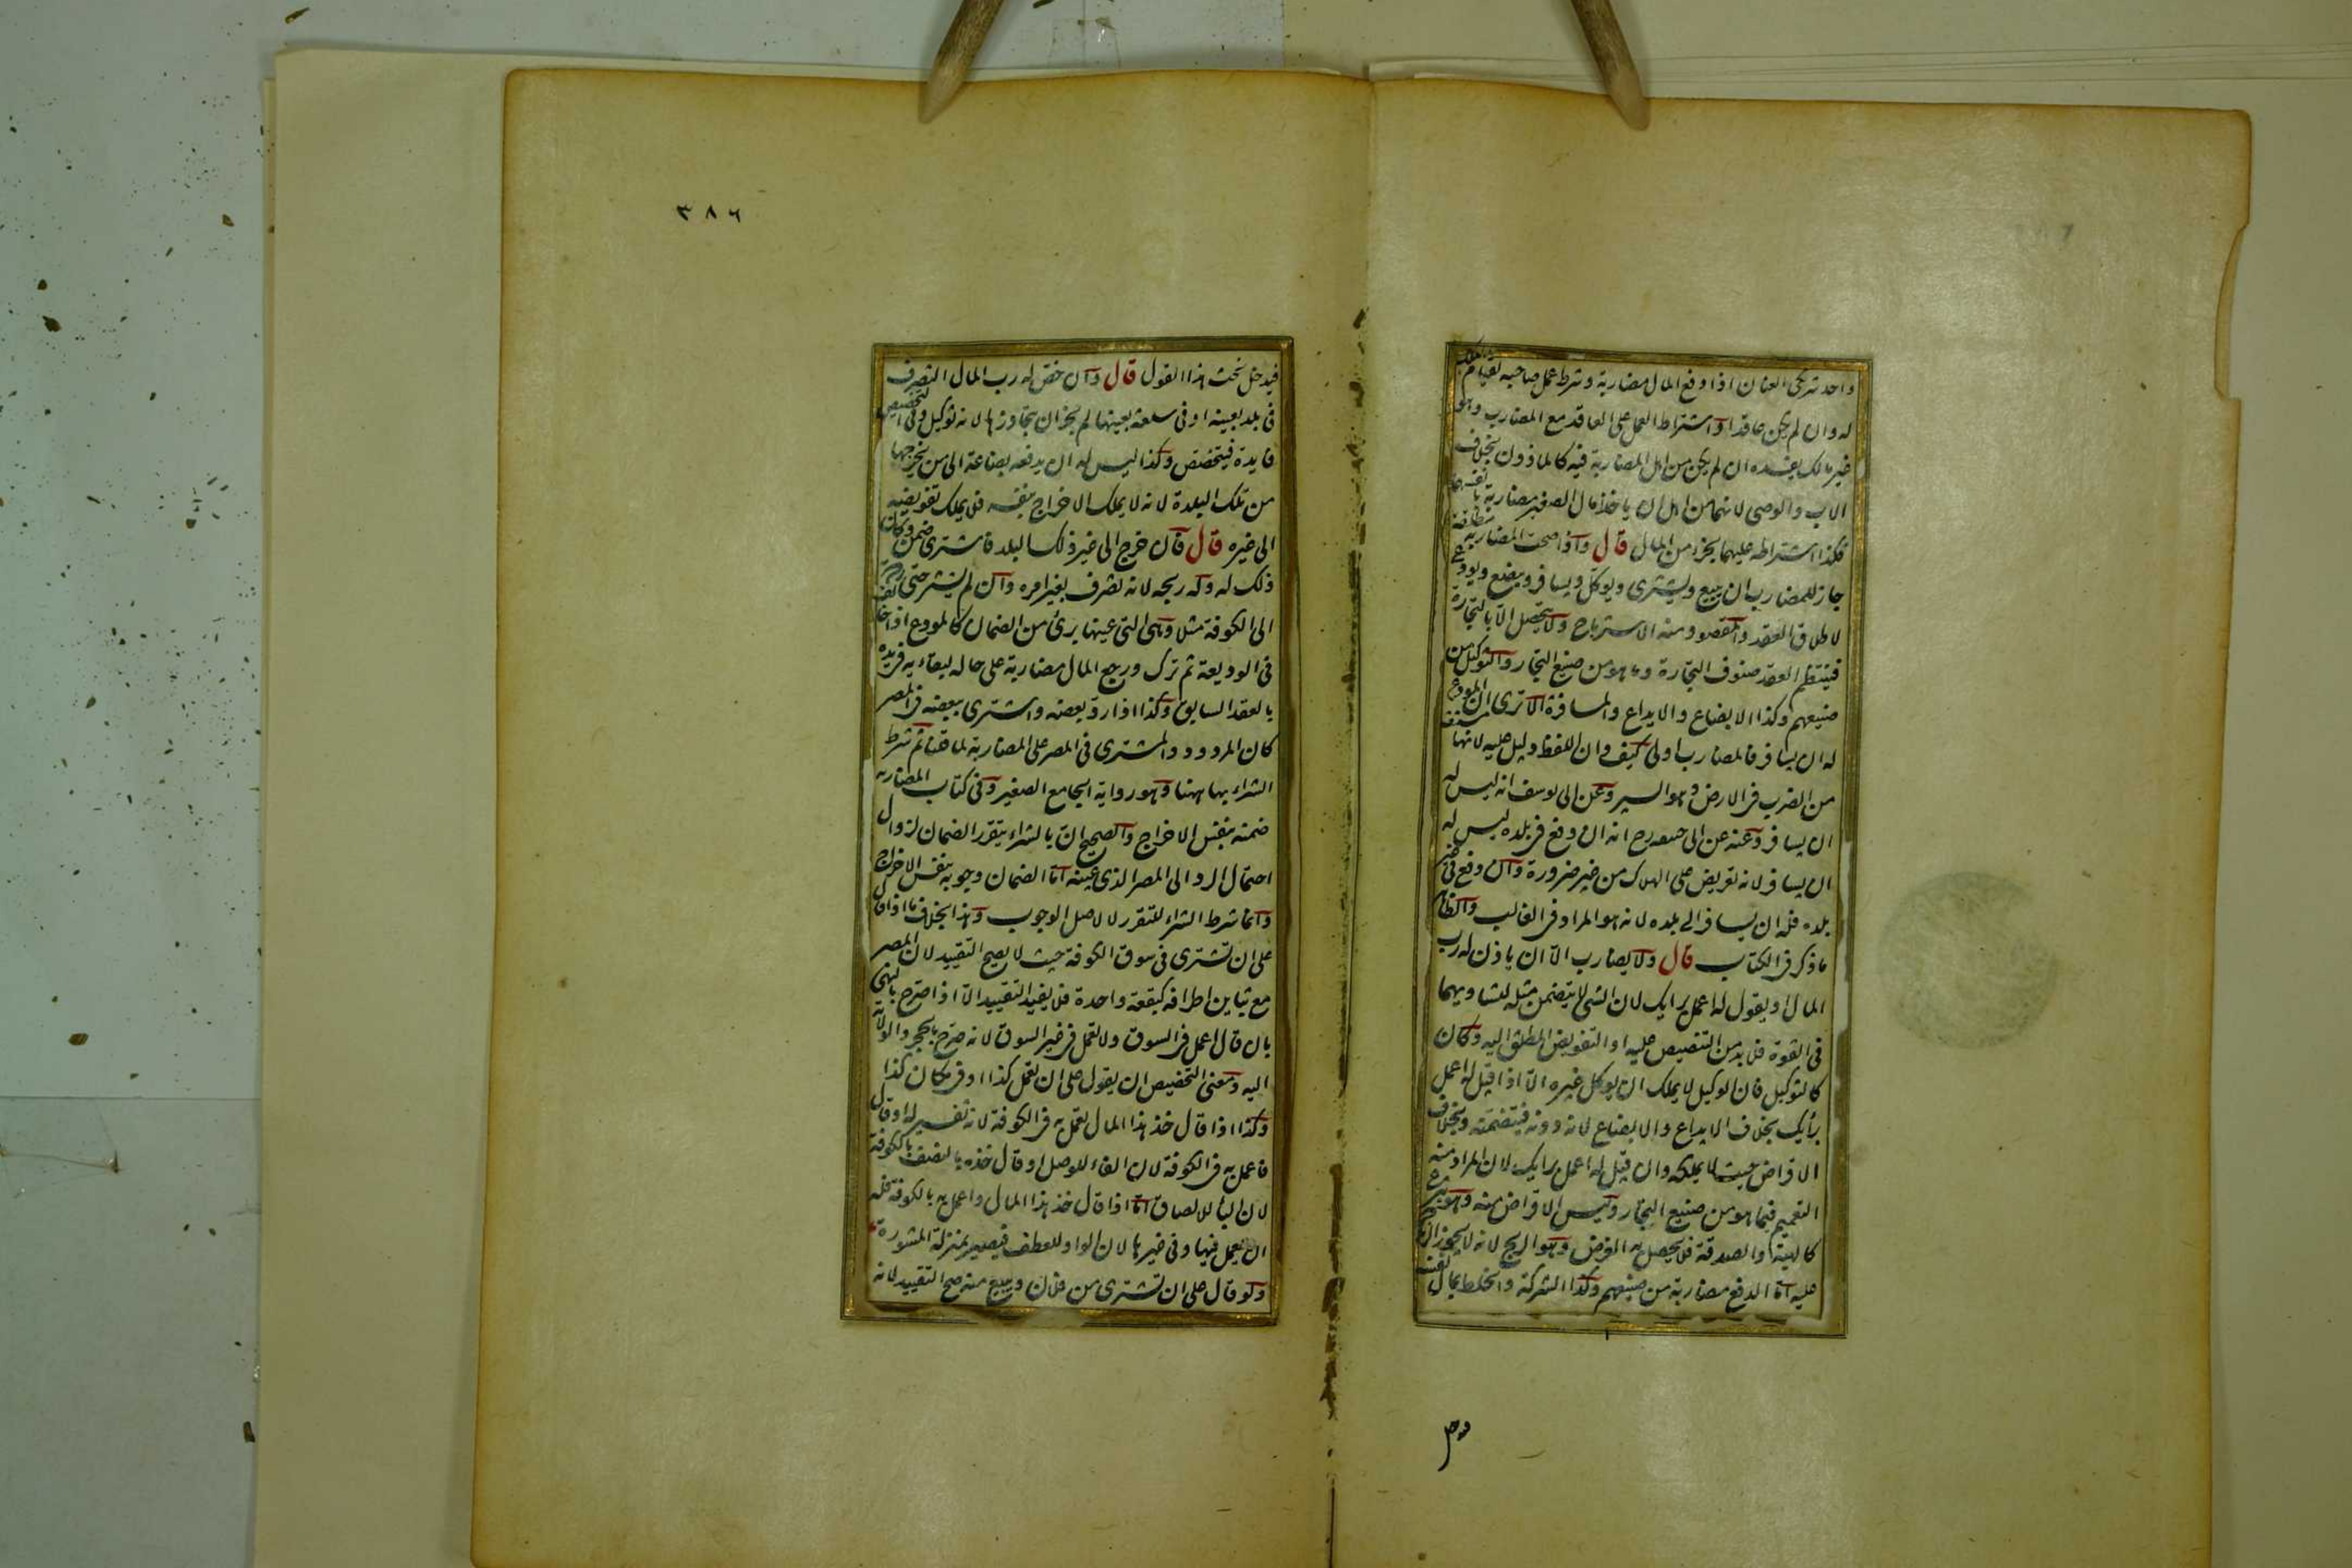 واحد شريكى العنان اذا دفع المال مضاربة وشرط عمل صاحبه لقيام الملك
له وان لم يكن عاقدا واشتراط العمل على العاقد مع المضارب وهو
غير مالك يفسده ان لم يكن من اهل المضاربة فيه كالماذون بخلاف
الاب والوصى لانهما من اهل ان ياخذا مال الصغير مضاربة بانفسهما
فكذا اشتراطه عليهما بجزء من المال قال واذا صحت المضاربة مطلقة
جاز للمضارب ان يبيع ويشترى ويوكل ويسافر ويبضع ويودع
لاطلاق العقد والمقصود منه الاسترباح ولا يتحصل الا بالتجارة
فينتظم العقد صنوف التجارة وما هو من صنيع التجار والتوكيل من
صنيعهم وكذا الابضاع والايداع والمسافرة الا ترى ان المودع
له ان يسافر فالمضارب اولى كيف وان اللفظ دليل عليه لانها مشتقة
من الضرب فى الارض وهو السير وعن ابى يوسف انه ليس له
ان يسافر وعنه عن ابى حنيفه رح انه ان دفع فى بلده ليس له
ان يسافر لانه تعريض على الهلاك من غير ضرورة وان دفع فى غير
بلده فله ان يسافر الى بلده لانه هو المراد فى الغالب والظاهر
ما ذكر فى الكتاب قال ولا يضارب الا ان ياذن له رب
المال او يقول له اعمل برايك لان الشئ لا يتضمن مثله لتساويهما
فى القوة فلا بد من التنصيص عليه او التفويض المطلق اليه وكان
كالتوكيل فان الوكيل لا يملك ان يوكل غيره الا اذا قيل له اعمل
برأيك بخلاف الايداع والابضاع لانه دونه فيتضمنه وبخلاف
الاقراض حيث لا يملكه وان قيل له اعمل برايك لان المراد منه
التعميم فيما هو من صنيع التجار وليس الاقراض منه وهو تبرع
كالهبة والصدقة فلا يحصل به الغرض وهو الربح لانه لا يجوز الزيادة
عليه اما الدفع مضاربة من صنيعهم وكذا الشركة والخلط بمال نفسه
٣٨٦
فيدخل تحت هذا القول قال وان خص له رب المال التصرف
فى بلد بعينه او فى سلعة بعينها لم يجز ان يتجاوزها لانه توكيل وفى التخصيص
فايدة فيتخصص وكذا ليس له ان يدفعه بضاعة الى من يخرجها
من تلك البلدة لانه لا يملك الاخراج بنفسه فلا يملك تفويضه
الى غيره قال فان خرج الى غير ذلك البلد فاشترى ضمن وكان
ذلك له وله ربحه لانه تصرف بغير امره وان لم يشتر حتى رده
الى الكوفة مثلا وهى التى عينها برئ من الضمان كالمودع اذا خالف
فى الوديعة ثم ترك ورجع المال مضاربة على حاله لبقاءه فى يده
بالعقد السابق وكذا اذا رد بعضه واشترى ببعضه فى المصر
كان المردود والمشترى فى المصر على المضاربة لما قلنا ثم شرط
الشراء بها ههنا وهو رواية الجامع الصغير وفى كتاب المضاربه
ضمنه بنفس الاخراج والصحيح ان بالشراء يتقرر الضمان لزوال
احتمال الرد الى المصر الذى عينه اما الضمان وجوبه بنفس الاخراج
وانما شرط الشراء للتقرر لا لاصل الوجوب وهذا بخلاف ما اذا قال
على ان تشترى فى سوق الكوفة حيث لا يصح التقييد لان المصر
مع تباين اطرافه كبقعة واحدة فلا يفيد التقييد الا اذا صرح بالنهى
بان قال اعمل فى السوق ولا تعمل فى غير السوق لانه صرح بالحجر والولاية
اليه ومعنى التخصيص ان يقول على ان تعمل كذا او فى مكان كذا
وكذا اذا قال خذ هذا المال تعمل به فى الكوفة لانه تفسير له او قال
فاعمل به فى الكوفة لان الفاء للوصل او قال خذه بالنصف بالكوفة
لان الباء للالصاق اما اذا قال خذ هذا المال واعمل به بالكوفة فله
ان يعمل فيها وفى غيرها لان الواو للعطف فيصير بمنزلة المشورة
ولو قال على ان تشترى من فلان وتبيع منه صح التقييد لانه